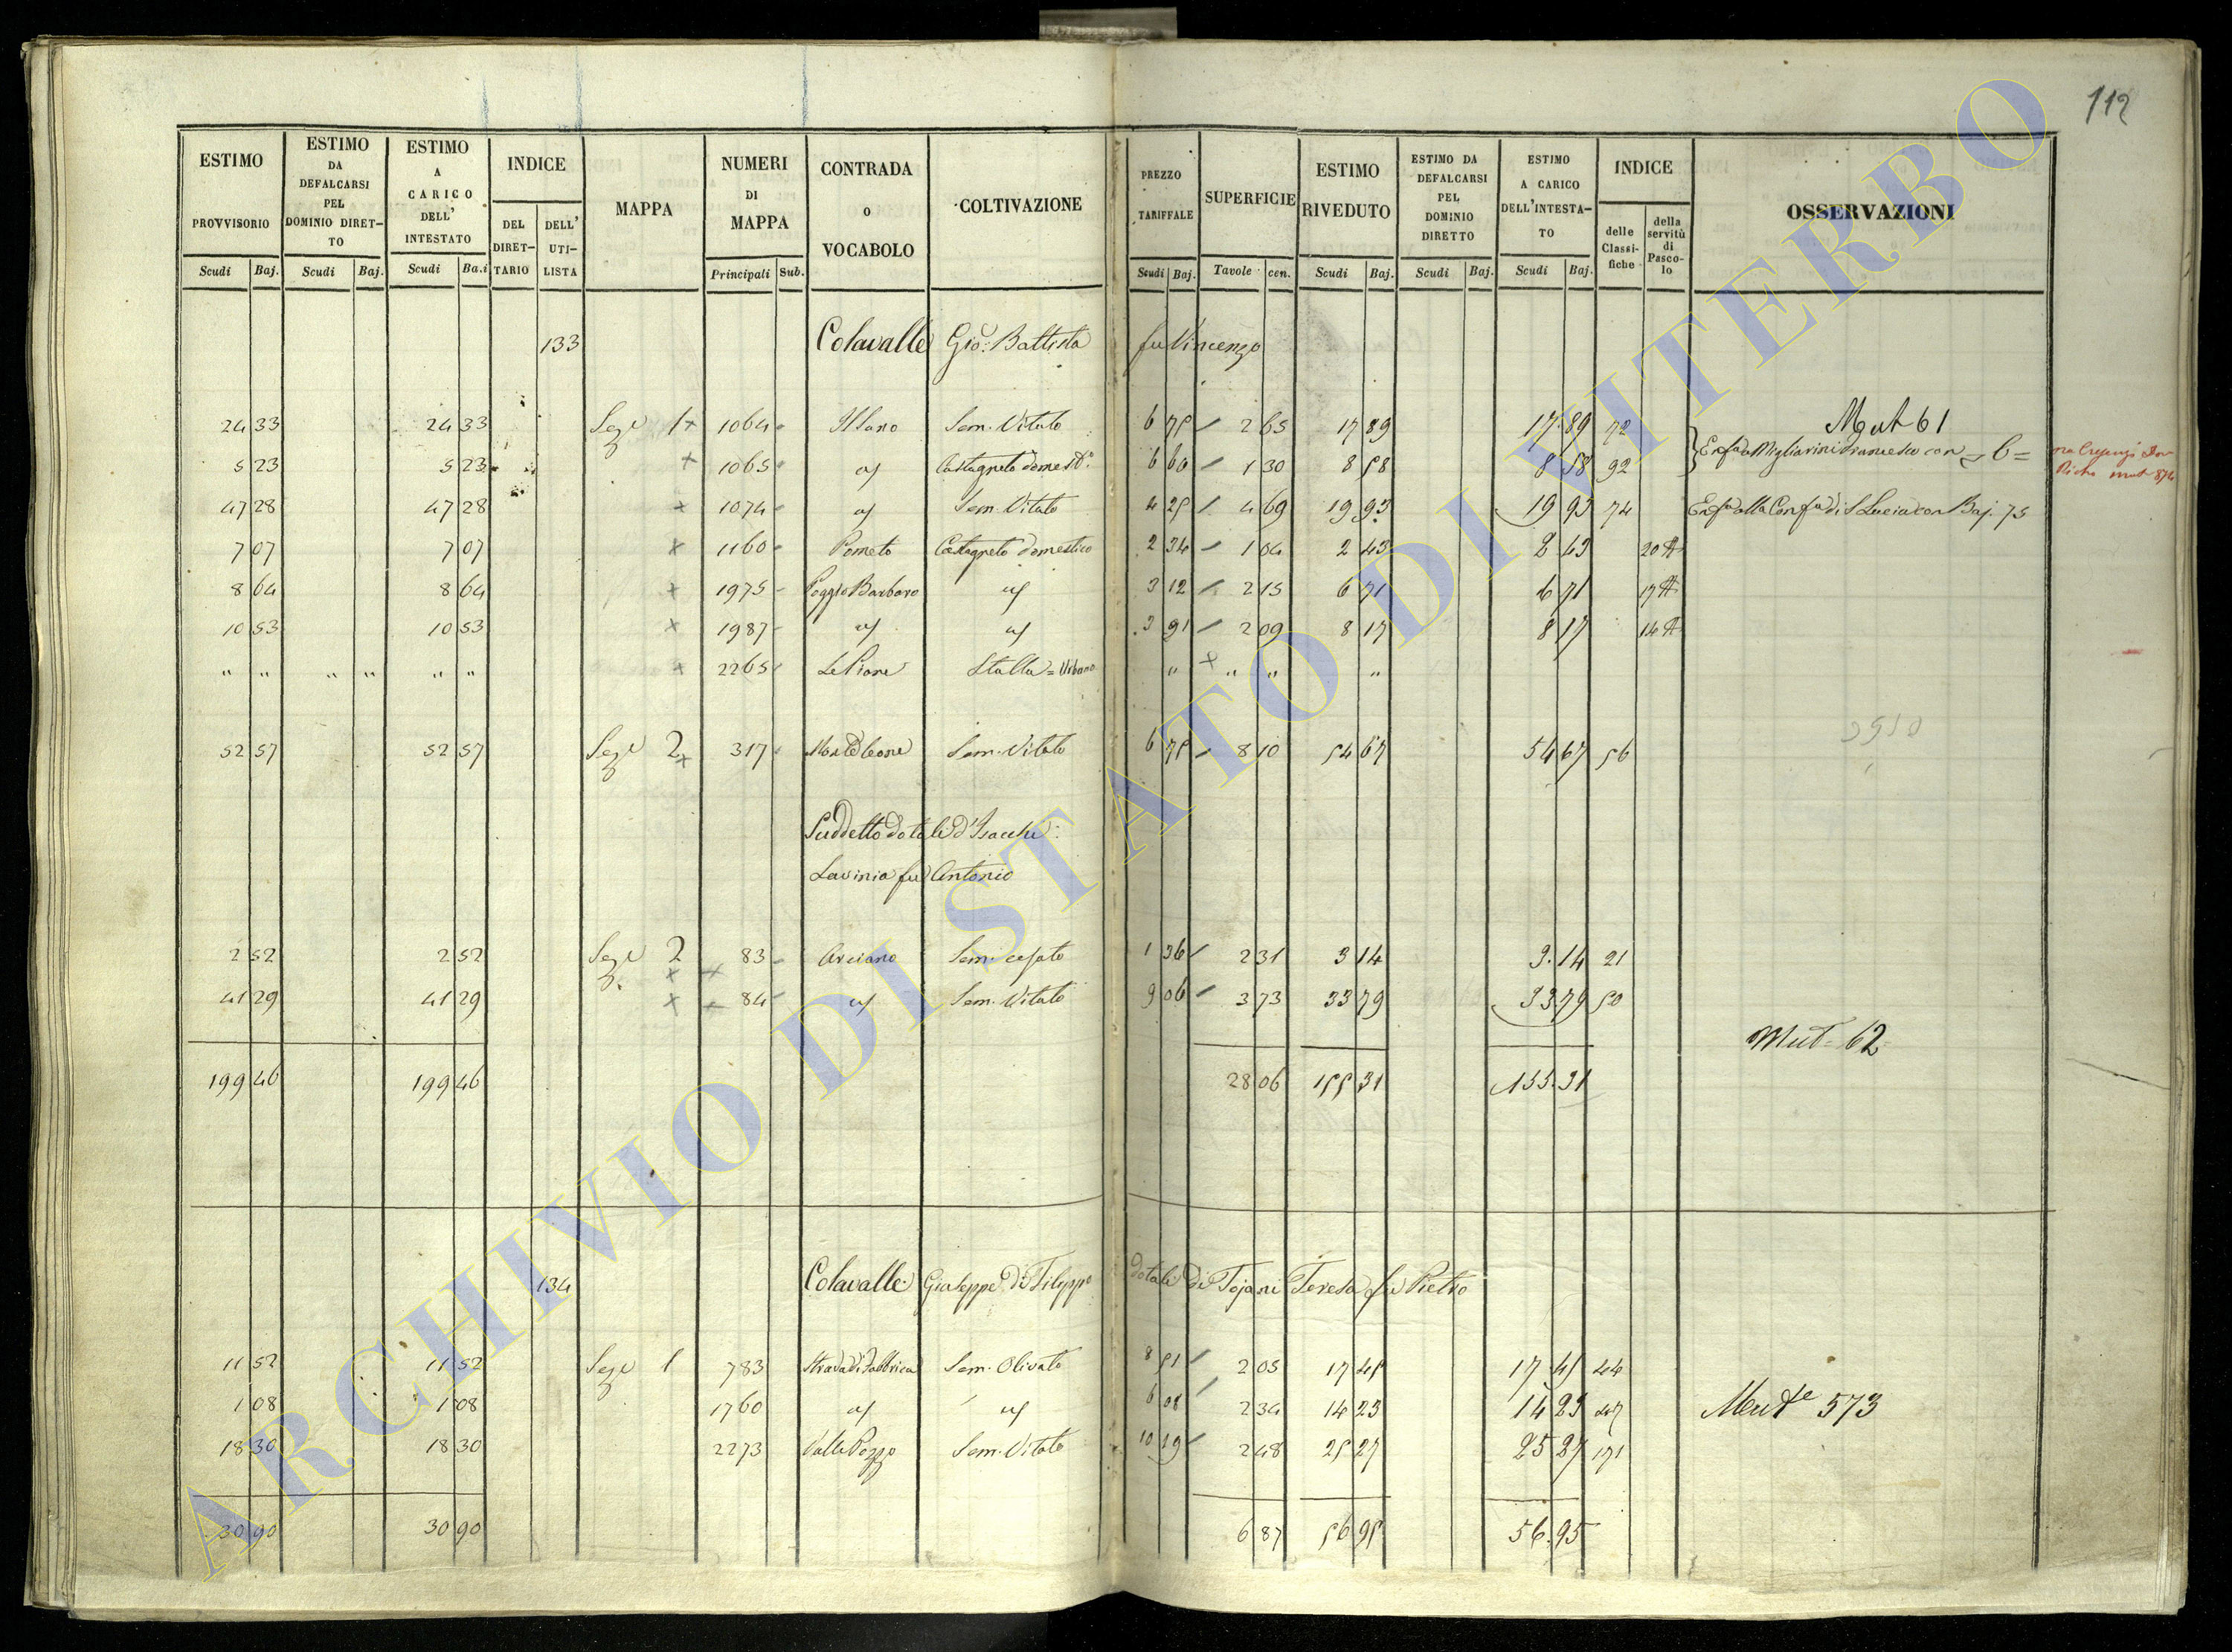 112
ESTIMO PROVVISORIO Scudi Baj. ESTIMO DA DEFALCARSI PEL DOMINIO DIRETTO Scudi Baj. ESTIMO A CARICO DELL' INTESTATO Scudi Baj. INDICE DEL DIRETTARIO DELL' UTILISTA MAPPA NUMERI DI MAPPA Principali Sub. CONTRADA O VOCABOLO COLTIVAZIONE PREZZO TARIFFALE Scudi Baj. SUPERFICIE Tavole cen. ESTIMO RIVEDUTO Scudi Baj. ESTIMO DA DEFALCARSI PEL DOMINIO DIRETTO Scudi Baj. ESTIMO A CARICO DELL'INTESTATO Scudi Baj. INDICE delle Classifiche della servitù di Pascolo OSSERVAZIONI
133 Colavalle Gio: Battista fu Vincenzo
Mut 61
24 33 24 33 Seze 1 1064 Sem. Vitato 6 75 2 65 17 89 17 89 72
5 23 5 23 1065 Castagneto domesto 6 60 1 30 8 58 8 58 92
47 28 47 28 1074 Sem. Vitato 4 25 4 69 19 93 19 93 74 Baj. 75
7 07 7 07 1160 Pometo Castagneto domestico 2 34 1 04 2 43 2 43 20
8 64 8 64 1975 Poggio Barbaro 3 12 2 15 6 71 6 71 17
10 53 10 53 1987 3 91 2 09 8 17 8 17 14
" " " " " " 2265 Le Piane Stalla = Urbana " " " "
52 57 52 57 Seze 2 317 Monte Leone Sem. Vitato 6 75 8 10 54 67 54 67 56
Suddetto dotale d'
Lavinia fu Antonio
2 52 2 52 Seze 2 83 Arciano Sem. 1 36 2 31 3 14 3.14 21
41 29 41 29 84 Sem. Vitato 9 06 3 73 33 79 33 79 50
Mut. 62
199 46 199 46 28 06 155 31 155.31
134 Colavalle Giuseppe di Filippo dotale di Tojani Teresa fu Pietro
11 52 11 52 Seze 1 783 Strada di Fabbrica Sem. Olivato 8 51 2 05 17 45 17 45 44
1 08 1 08 1760 6 08 2 34 14 23 14 23 47 Mute 573
18 30 18 30 2273 Valle Pozzo Sem. Vitato 10 19 2 48 25 27 25 27 171
30 90 30 90 6 87 56 95 56.95
ARCHIVIO DI STATO DI VITERBO